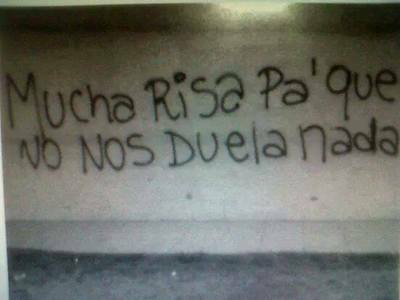 Mucha Risa Pa' que
No Nos Duela nada